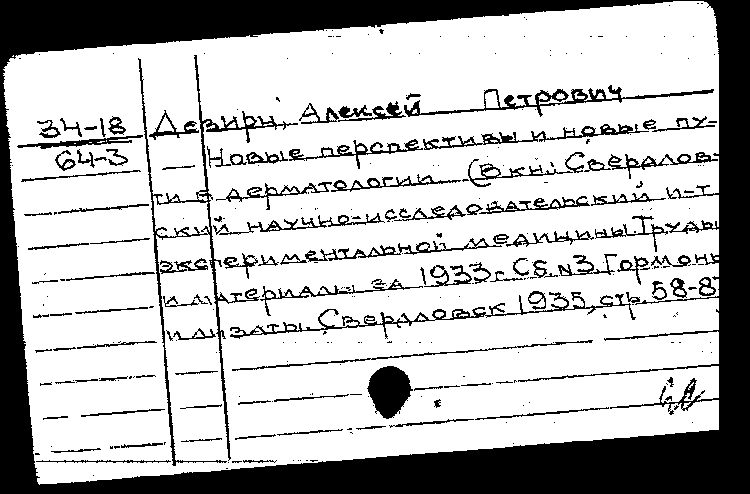 34-18
64-3
Девири, Алексей Петрович
— Новые перспективы и новые пу-
ти в дерматологии (В кн: Свердлов-
ский научно-исследовательский и-т
экспериментальной медицины. Труды
и материалы за 1933 г. Сб. N3. Гормоны
и лизаты. Свердловск 1935, стр. 58-8